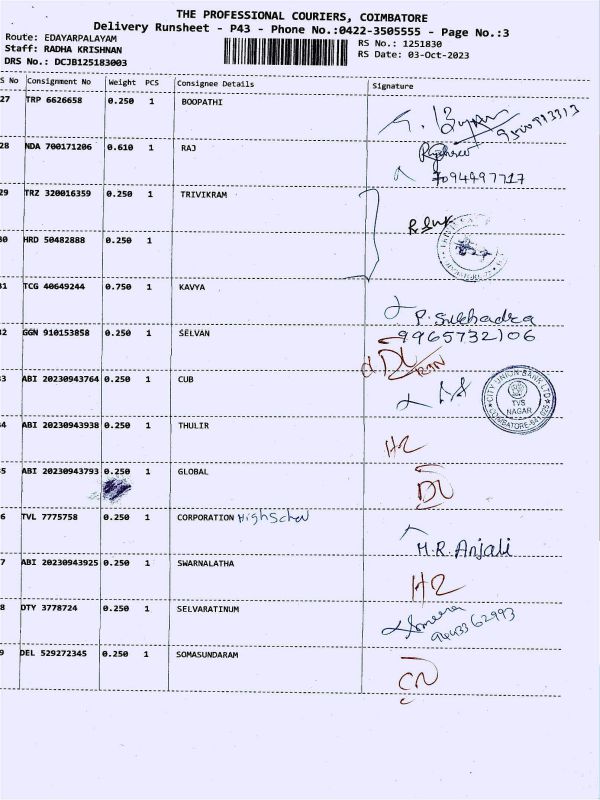 THE PROFESSIONAL COURIERS, COIMBATORE
Delivery Runsheet - P43 - Phone No.:0422-3505555 - Page No.:3
Route: EDAYARPALAYAM
RS No.: 1251830
Staff: RADHA KRISHNAN
RS Date: 03-Oct-2023
DRS No.: DCJB125183003
S No Consignment No Weight PCS Consignee Details Signature
27 TRP 6626658 0.250 1 BOOPATHI
9500913313
28 NDA 700171206 0.610 1 RAJ
7094497717
29 TRZ 320016359 0.250 1 TRIVIKRAM
30 HRD 50482888 0.250 1
31 TCG 40649244 0.750 1 KAVYA
P. Sukhadra
9965732106
32 GGN 910153858 0.250 1 SELVAN
DL
3 ABI 20230943764 0.250 1 CUB
CITY UNION BANK LTD
TVS
NAGAR
COIMBATORE-641 025
34 ABI 20230943938 0.250 1 THULIR
H2
35 ABI 20230943793 0.250 1 GLOBAL
DL
6 TVL 7775758 0.250 1 CORPORATION High School
H.R. Anjali
7 ABI 20230943925 0.250 1 SWARNALATHA
H2
8 DTY 3778724 0.250 1 SELVARATINUM
9443362993
9 DEL 529272345 0.250 1 SOMASUNDARAM
CN